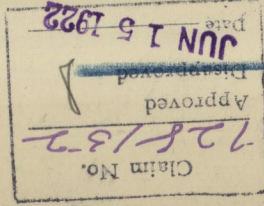 Claim No.
128132
Approved
Disapproved
Date JUN 15 1922